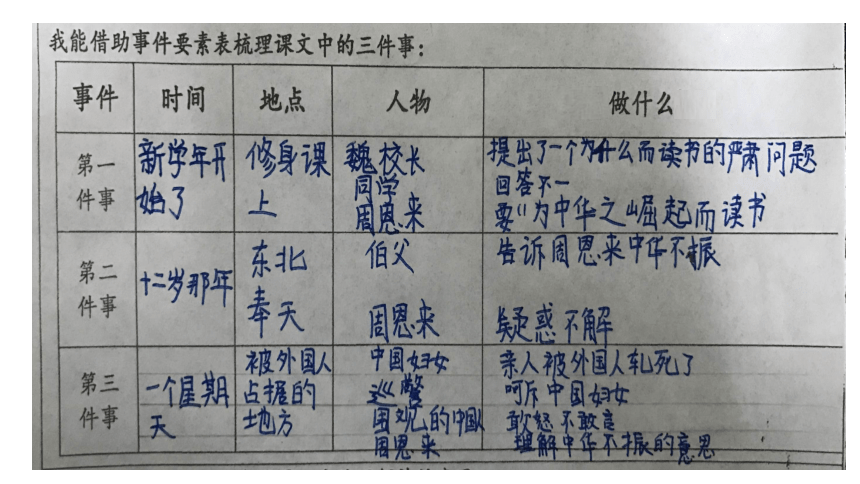 我能借助事件要素表梳理课文中的三件事:
事件 时间 地点 人物 做什么
第一件事
新学年开
始了
修身课
上
魏校长
同学
周恩来
提出了一个为什么而读书的严肃问题
回答不一
要"为中华之崛起而读书
第二件事
十二岁那年
东北
奉天
伯父
周恩来
告诉周恩来中华不振
疑惑不解
第三件事
一个星期
天
被外国人
占据的
地方
中国妇女
巡警
围观的中国人
周恩来
亲人被外国人轧死了
呵斥中国妇女
敢怒不敢言
理解中华不振的意思